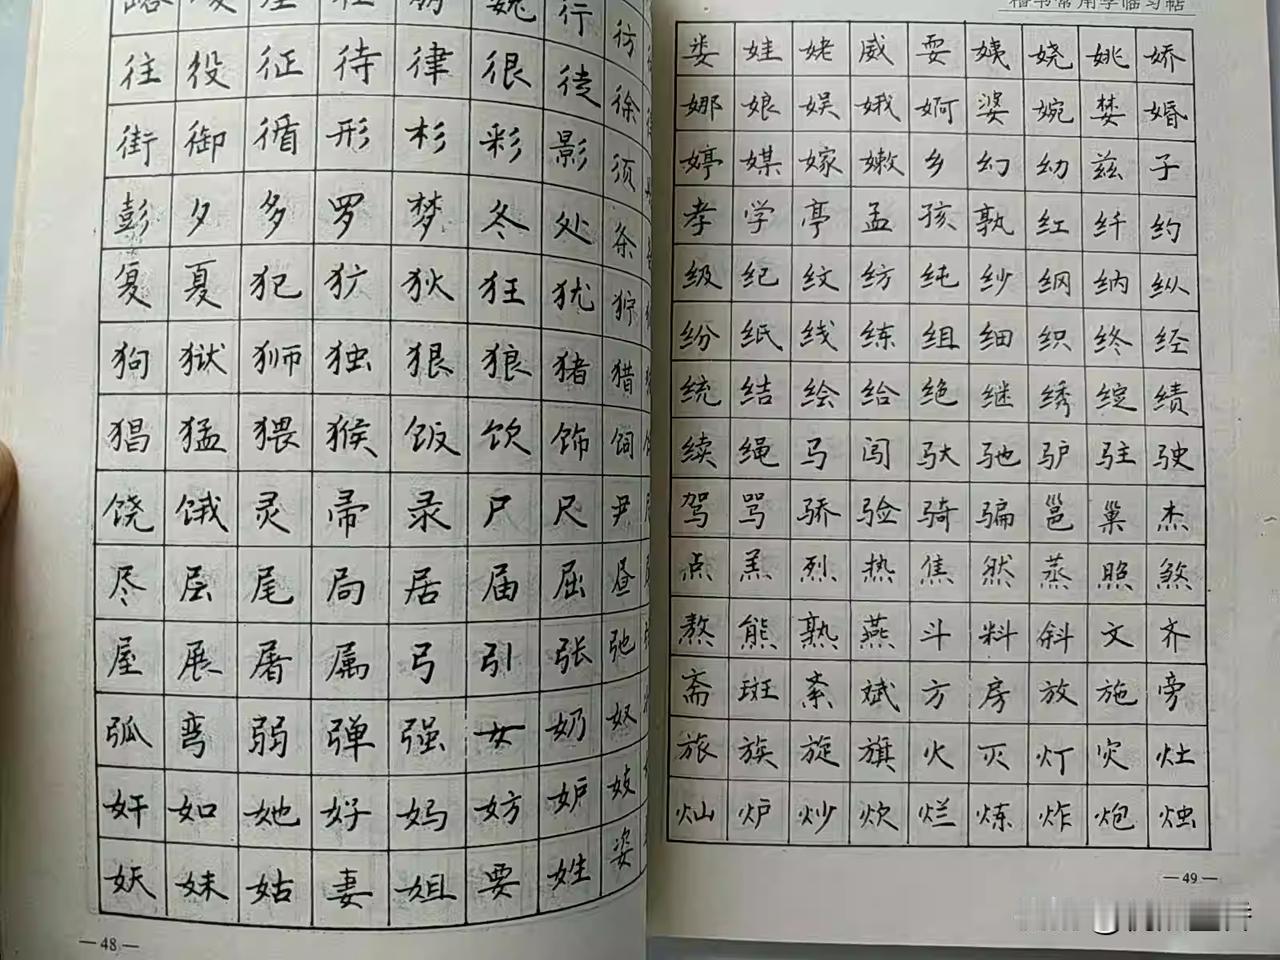 行 彷
往 役 征 待 律 很 徒 徐
街 御 循 形 杉 彩 影 须
彭 夕 多 罗 梦 冬 处 条
复 夏 犯 犷 狄 狂 犹 狞
狗 狱 狮 独 狠 狼 猪 猎
猖 猛 猥 猴 饭 饮 饰 饲
饶 饿 灵 帚 录 尸 尺 尹
尽 层 尾 局 居 届 屈 昼
屋 展 屠 属 弓 引 张 弛
弧 弯 弱 弹 强 女 奶 奴
奸 如 她 好 妈 妨 妒 妓
妖 妹 姑 妻 姐 要 姓 姿
—48—
楷书常用字临习帖
娄 娃 姥 威 耍 姨 娆 姚 娇
娜 娘 娱 娥 婀 婆 婉 婪 婚
婷 媒 嫁 嫩 乡 幻 幼 兹 子
孝 学 亭 孟 孩 孰 红 纤 约
级 纪 纹 纺 纯 纱 纲 纳 纵
纷 纸 线 练 组 细 织 终 经
统 结 绘 给 绝 继 绣 绽 绩
续 绳 马 闯 驮 驰 驴 驻 驶
驾 骂 骄 验 骑 骗 邕 巢 杰
点 羔 烈 热 焦 然 蒸 照 煞
熬 熊 熟 燕 斗 料 斜 文 齐
斋 斑 紊 斌 方 房 放 施 旁
旅 族 旋 旗 火 灭 灯 灾 灶
灿 炉 炒 炊 烂 炼 炸 炮 烛
—49—